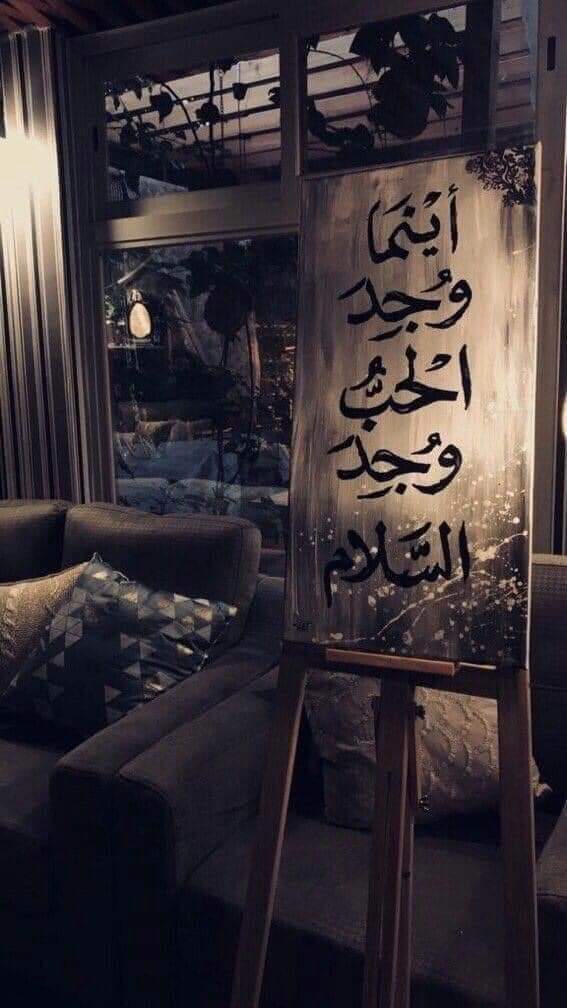 أَيْنَمَا
وُجِدَ
الْحُبُّ
وُجِدَ
السَّلام